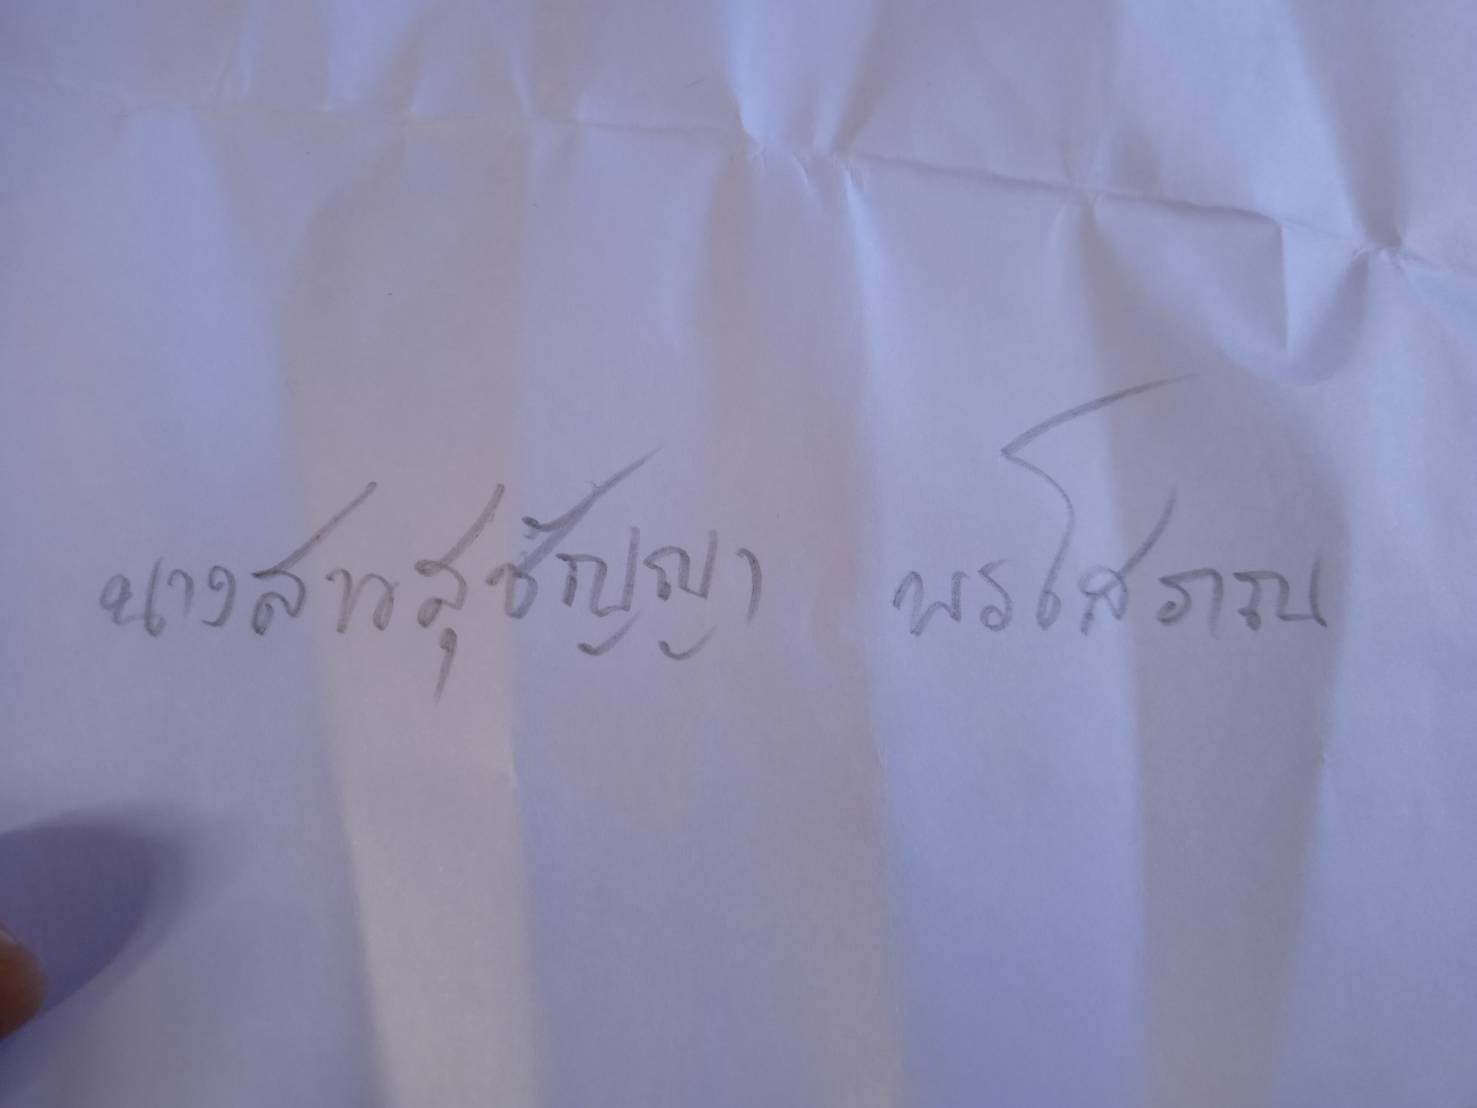 นางสาวสุชัญญา พรโสภณ